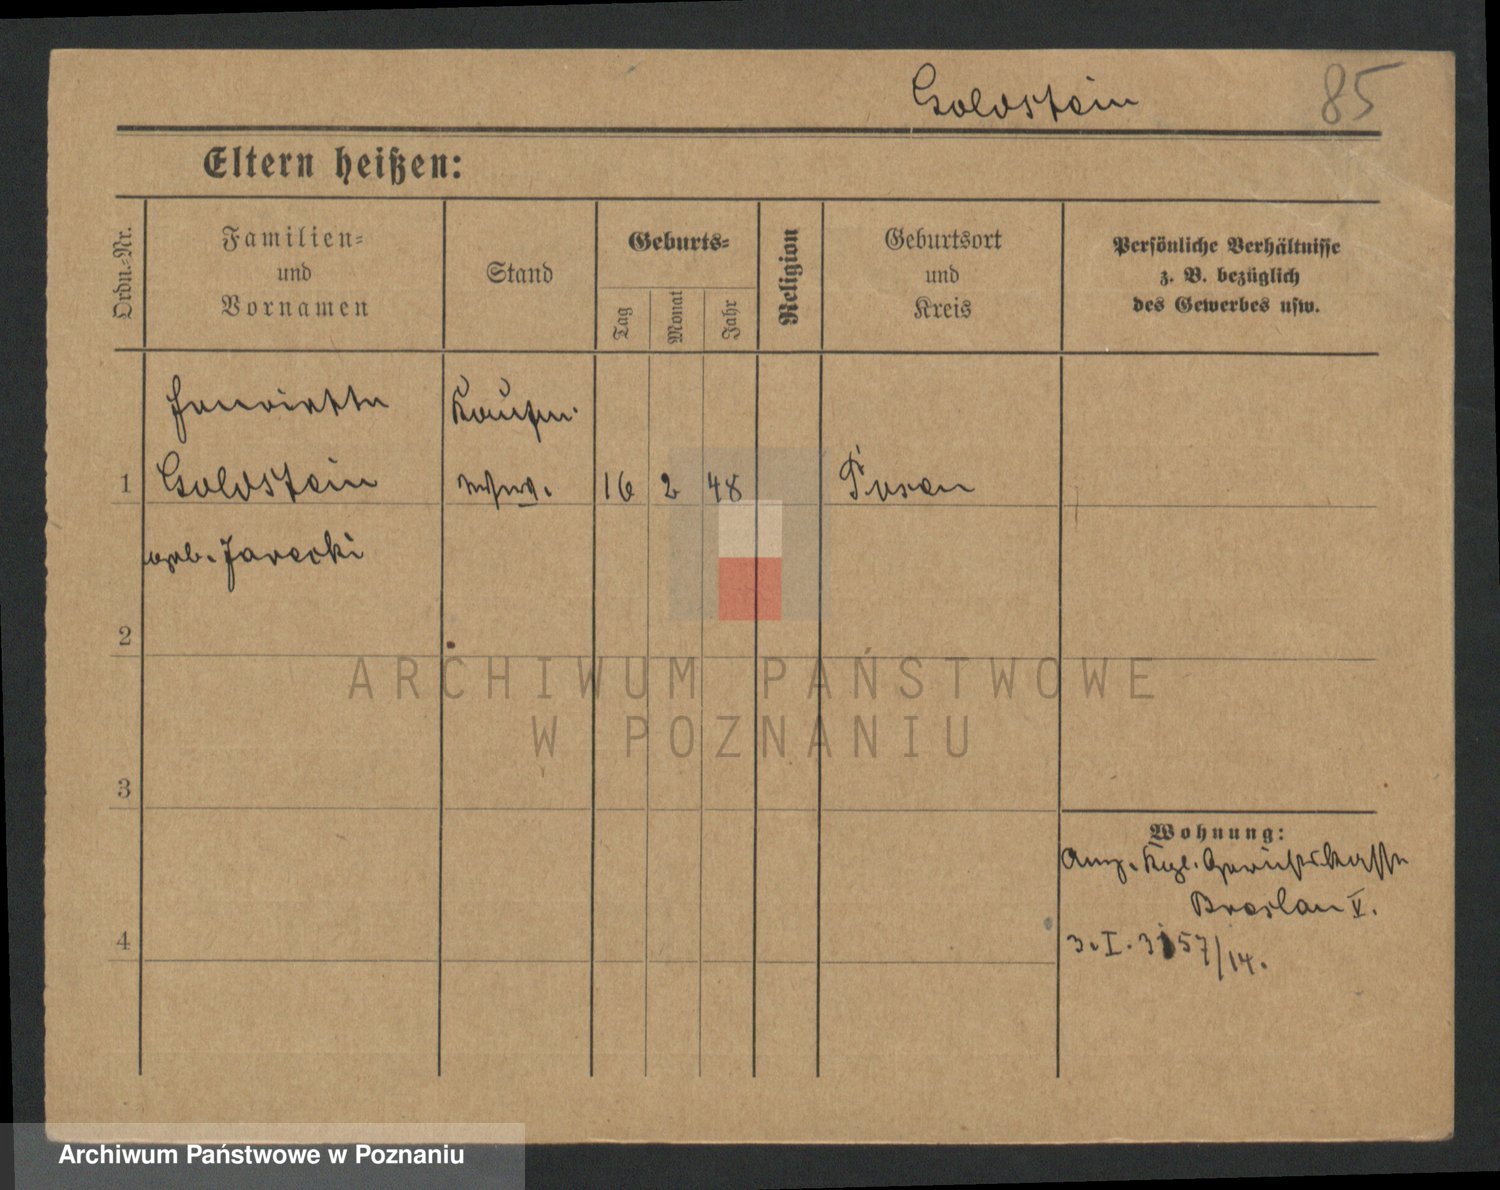 Goldstein 85
Eltern heißen:
Ordn.-Nr.
Familien-
und
Vornamen
Stand
Geburts-
Tag
Monat
Jahr
Religion
Geburtsort
und
Kreis
Persönliche Verhältnisse
z. B. bezüglich
des Gewerbes usw.
Henriette Kaufm.
1 Goldstein 16 2 48 Posen
geb. Jarecki
2
ARCHIWUM PAŃSTWOWE
W POZNANIU
3
Wohnung:
Kgl. Gerichtskasse
Breslau V.
4
3. I. 3157/14.
Archiwum Państwowe w Poznaniu